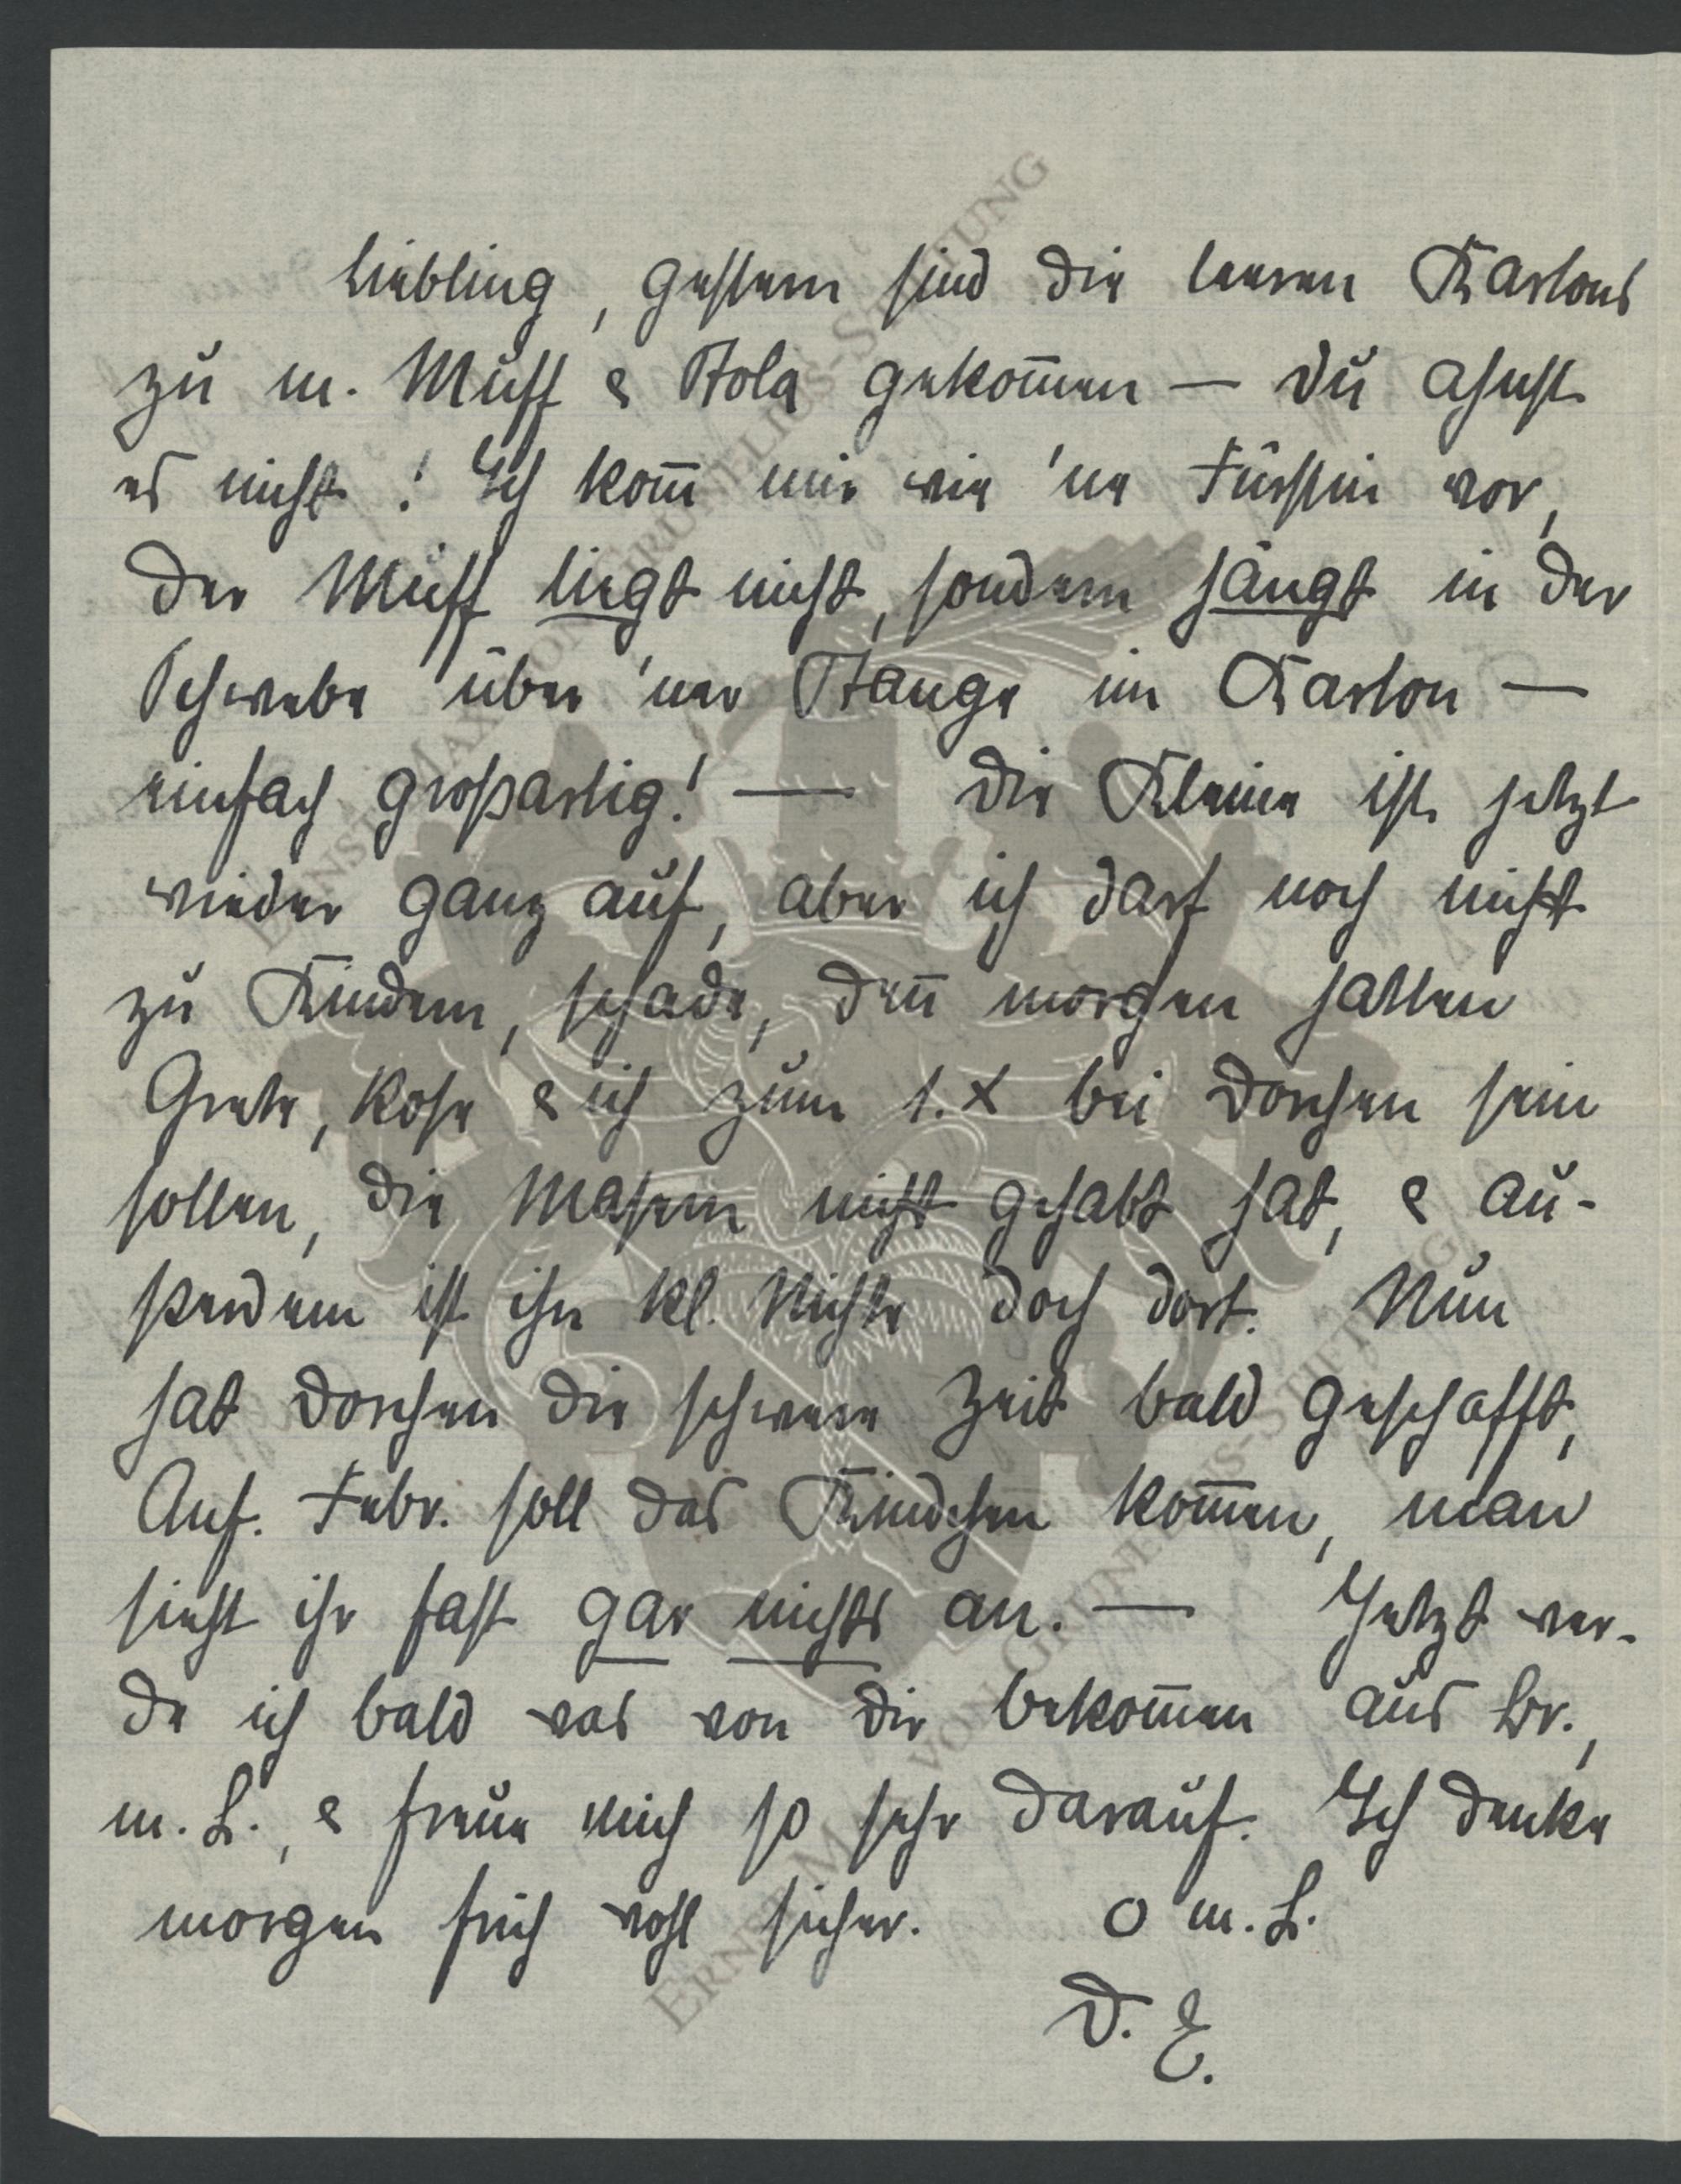 Liebling, gestern sind die leeren Kartons
zu m. Muff & Stola gekom̅en — Du ahnst
es nicht! Ich kom̅ mir wie 'ne Fürstin vor,
der Muff liegt nicht, sondern hängt in der
Schwebe über 'ner Stange im Karton —
einfach großartig! — Die Kleine ist jetzt
wieder ganz auf, aber ich darf noch nicht
zu Kindern, schade, den̅ morgen hatten
Grete, Rose & ich zum 1. X bei Dorchen sein
sollen, die Masern nicht gehabt hat, & au-
sserdem ist ihre kl. Nichte doch dort. Nun
hat Dorchen die schwere Zeit bald geschafft,
Anf. Febr. soll das Kindchen kom̅en, man
sieht ihr fast gar nichts an. — Jetzt wer-
de ich bald was von Dir bekom̅en aus Br.,
m. L., & freue mich so sehr darauf. Ich denke
morgen früh wohl sicher. O m. L.
D. E.
ERNST MAX VON GRUNELIUS-STIFTUNG
ERNST MAX VON GRUNELIUS-STIFTUNG